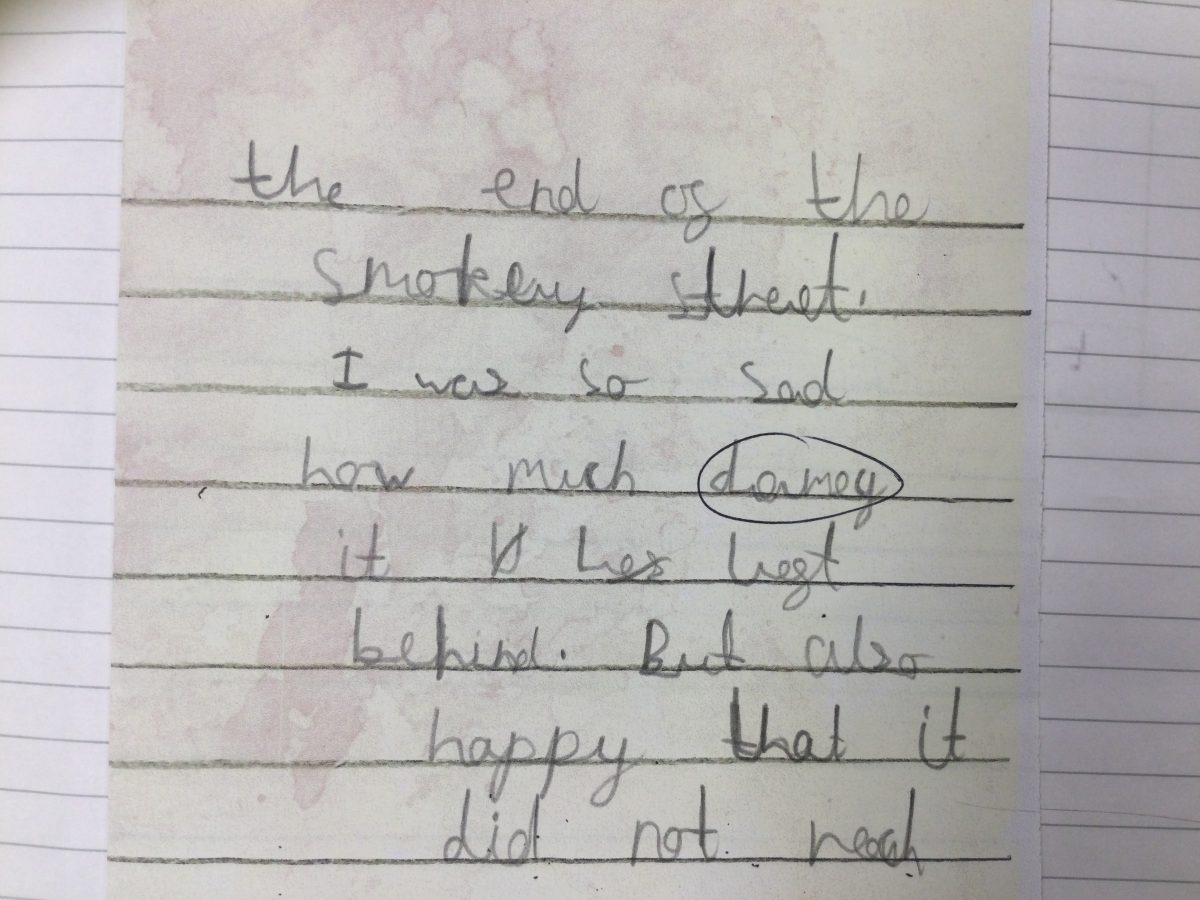 the end of the
smokey street.
I was so sad
how much damey
it has left
behind. But also
happy that it
did not reach